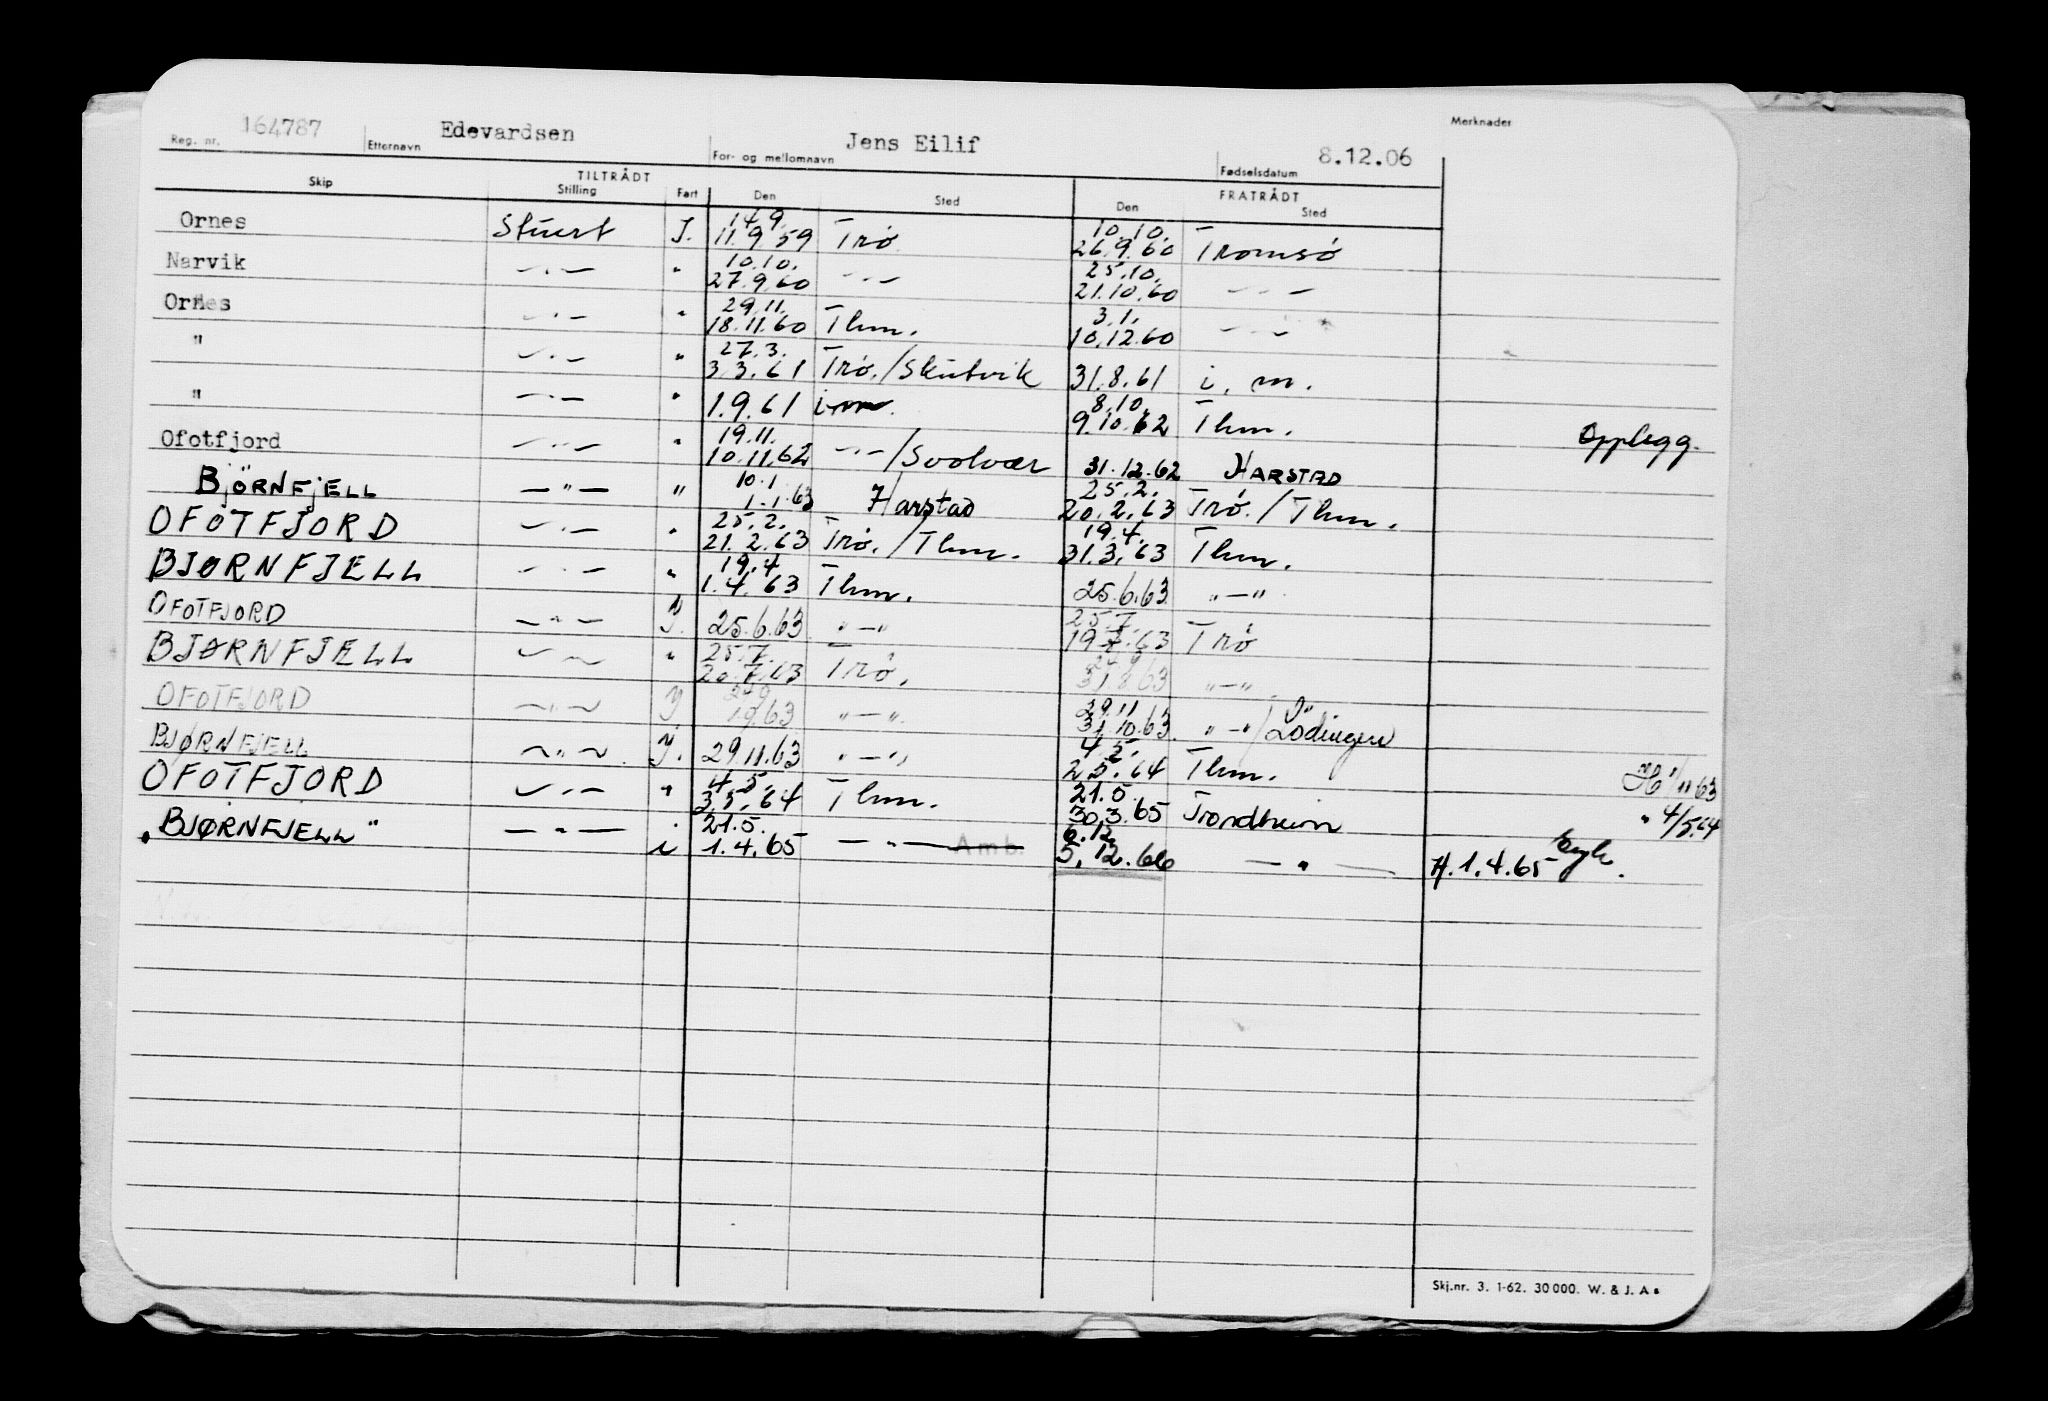 Reg. nr. 164787 Etternavn Edevardsen For- og mellomnavn Jens Eilif Fødselsdatum 8.12.06 Merknader
TILTRÅDT FRATRÅDT
Skip Stilling Fart Den Sted Den Sted
14.9. 10.10.
Ornes Stuert J. 11.9.59 Trø 26.9.60 Tromsø
10.10. 25.10.
Narvik —"— " 27.9.60 —"— 21.10.60 —"—
29.11. 3.1.
Ornes —"— " 18.11.60 Thm. 10.12.60 —"—
27.3.
" —"— " 3.3.61 Trø./Skutvik 31.8.61 i. m.
8.10.
" —"— " 1.9.61 i m. 9.10.62 Thm. Opplegg.
19.11.
Ofotfjord —"— " 10.11.62 —"—/Svolvær 31.12.62 HARSTAD
10.1 25.2.
BJÖRNFJELL —"— " 1.1.63 Harstad 20.2.63 Trø./Thm.
25.2. 19.4.
OFOTFJORD —"— " 21.2.63 Trø./Thm. 31.3.63 Thm.
19.4
BJØRNFJELL —"— " 1.4.63 Thm. 25.6.63 "—"
25.7.
OFOTFJORD —"— J. 25.6.63 "—" 19.7.63 Trø
25.7.
BJØRNFJELL —"— " 20.7.63 Trø. 31.8.63 "—"
29.11
OFOTFJORD —"— J 1.9.63 "—" 31.10.63 "—"/Lödingen
4.5.
BJØRNFJELL —"— J. 29.11.63 "—" 2.5.64 Thm. 63
4.5. 21.5.
OFOTFJORD —"— " 3.5.64 Thm. 30.3.65 Trondheim " 4/5.64
21.5. 6.12.
"BJØRNFJELL" —"— i 1.4.65 —"— Amb. 5.12.66 —"— A. 1.4.65
Skj.nr. 3. 1-62. 30 000. W. & J. A s